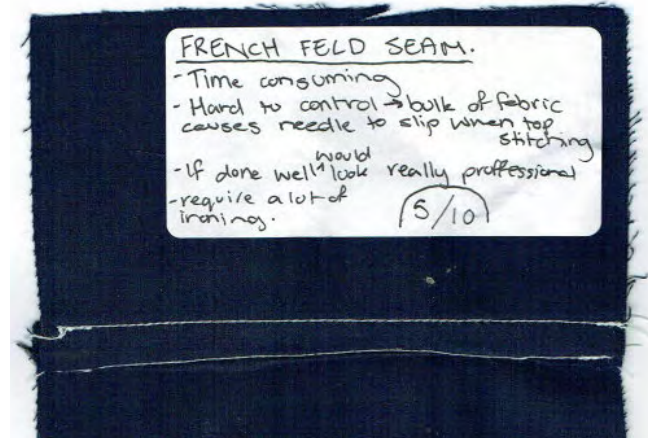 FRENCH FELD SEAM.
- Time consuming
- Hard to control → bulk of febric
causes needle to slip when top
stitching
- If done well would look really proffessional
- require a lot of
ironing.
5/10